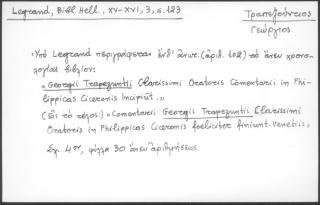 Legrand, Bibl. Hell., XV-XVI, 3, σ. 123
Τραπεζούντιος
Γεώργιος
Ὑπὸ Legrand περιγράφεται ἐνθ' ἀνωτ. (ἀριθ. 102) τὸ ἄνευ χρονο-
λογίας βιβλίον:
"Georgii Trapezuntii Clarissimi Oratoris Comentarii in Phi-
lippicas Ciceronis Incipiūt."
(Εἰς τὸ τέλος:) "Comentarii Georgii Trapezuntii Clarissimi
Oratoris in Philippicas Ciceronis foeliciter finiunt. Venetiis,
Σχ. 4ον, φύλλα 30 ἄνευ ἀριθμήσεως.